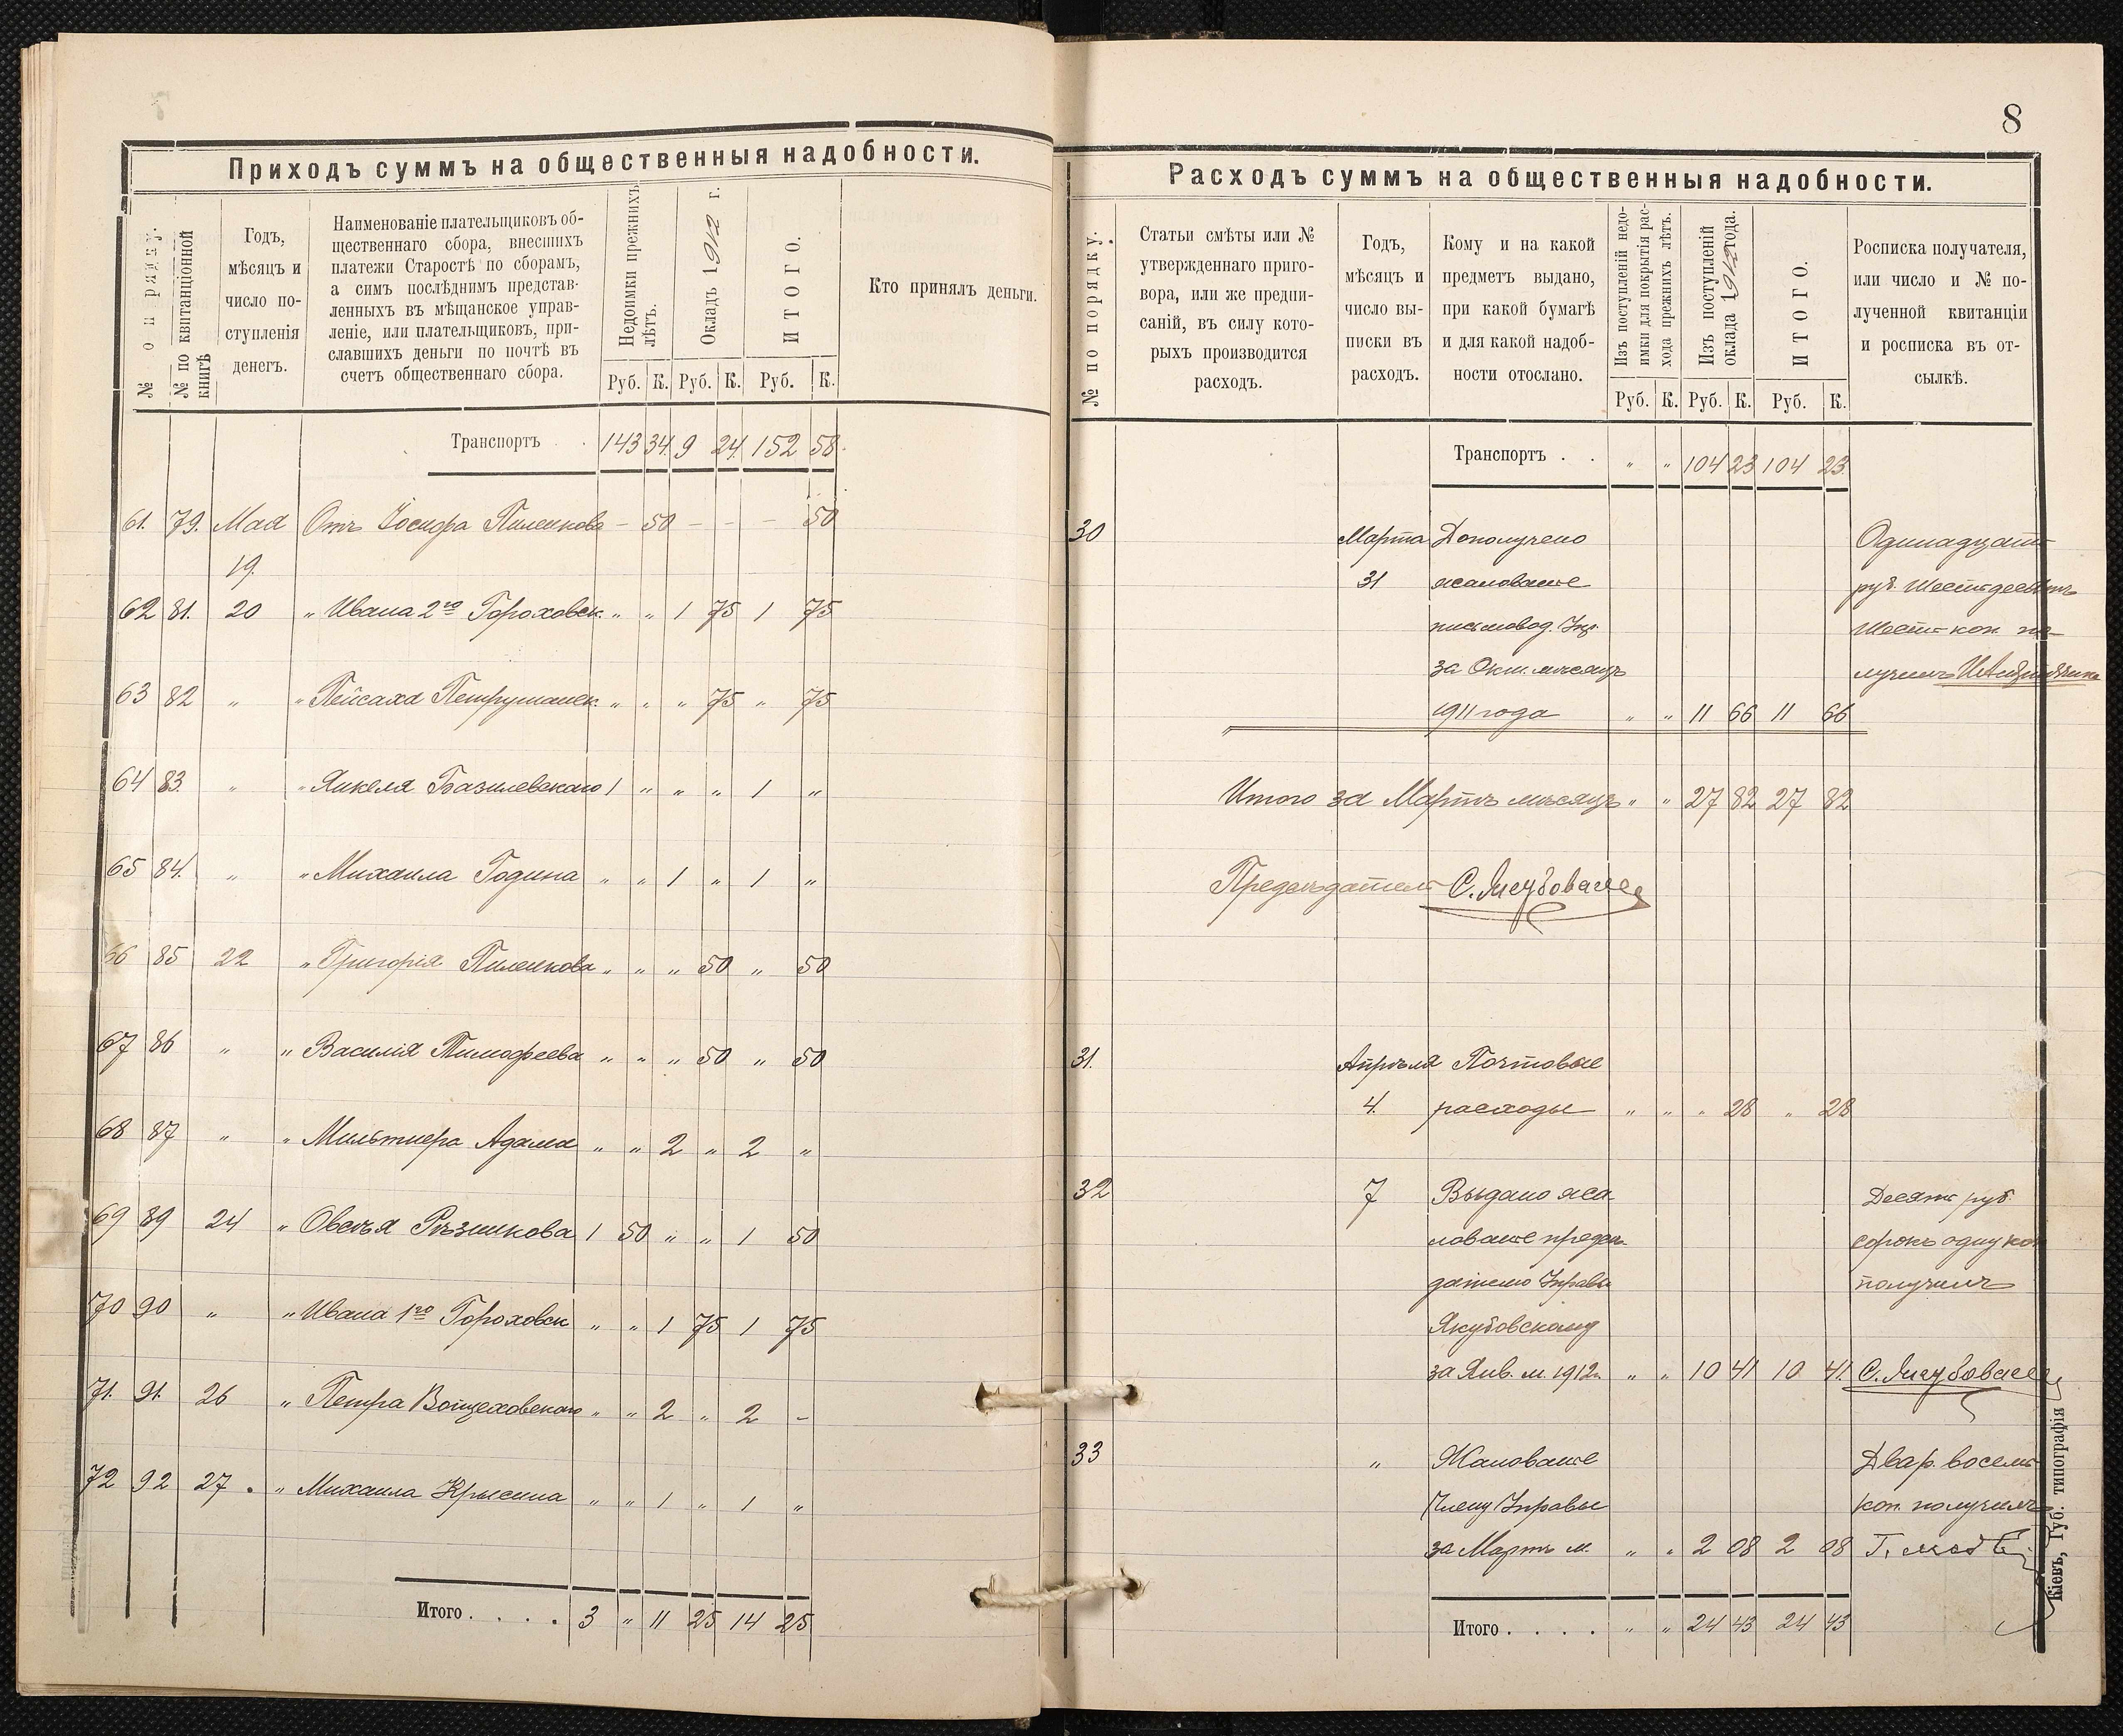 Приходъ суммъ на общественныя надобности.
№ по ряду.
№ по квитанціонной книгѣ
Годъ, мѣсяцъ и число поступленія денегъ.
Наименованіе плательщиковъ об-
щественнаго сбора, внесшихъ
платежи Старостѣ по сборамъ,
а симъ послѣднимъ представ-
ленныхъ въ мѣщанское управ-
леніе, или плательщиковъ, при-
славшихъ деньги по почтѣ въ
счетъ общественнаго сбора.
Недоимки прежнихъ лѣтъ.
Окладъ 1912 г.
ИТОГО.
Кто принялъ деньги.
Руб. К. Руб. К. Руб. К.
Транспортъ . . 143 34 9 24 152 58
61. 79. Мая Отъ Іосифа Пиленкова – 50 – – – 50
19.
62 81. 20 „ Ивана 2го Гороховск. „ „ 1 75 1 75
63 82 „ „ Пейсаха Петрушанск. „ „ „ 75 „ 75
64 83. „ „ Янкеля Базилевскаго 1 „ „ „ 1 „
65 84. „ „ Михаила Година „ „ 1 „ 1 „
66 85 22 „ Григорія Пиленкова „ „ „ 50 „ 50
67 86 „ „ Василія Тимофеева „ „ „ 50 „ 50
68 87 „ „ Мильтнера Адама „ „ 2 „ 2 „
69 89 24 „ Овсѣя Рѣзникова 1 50 „ „ 1 50
70 90 „ „ Ивана 1го Гороховск „ „ 1 75 1 75
71. 91. 26 „ Петра Войцеховскаго „ „ 2 „ 2 –
72 92 27 . „ Михаила Крысина „ „ 1 „ 1 „
Итого . . . . 3 „ 11 25 14 25
8
Расходъ суммъ на общественныя надобности.
№ по порядку.
Статьи смѣты или №
утвержденнаго приго-
вора, или же предпи-
саній, въ силу кото-
рыхъ производится
расходъ.
Годъ,
мѣсяцъ и
число вы-
писки въ
расходъ.
Кому и на какой
предметъ выдано,
при какой бумагѣ
и для какой надоб-
ности отослано.
Изъ поступленій недо-
имки для покрытія рас-
хода прежнихъ лѣтъ.
Изъ поступленій
оклада 1912 года.
ИТОГО.
Росписка получателя,
или число и № по-
лученной квитанціи
и росписка въ от-
сылкѣ.
Руб. К. Руб. К. Руб. К.
Транспортъ . . „ „ 104 23 104 23.
30 Марта Дополучено Одинадцать
31 жалованье руб. шестьдесятъ
письмовод. Упр. шесть коп. по-
за Окт. мѣсяцъ лучилъ
1911 года „ „ 11 66 11 66
Итого за Мартъ мѣсяцъ „ „ 27 82 27 82
Предсѣдатель С. Якубовскій
31. Апрѣля Почтовые
4. расходы „ „ „ 28 „ 28
32 7 Выдано жа- Десять руб.
лованье предсѣ- сорокъ одну коп
дателю Управы получилъ
Якубовскому
за Янв. м. 1912 г. „ „ 10 41 10 41. С. Якубовскій
33 „ Жалованье Два р. восемь
Члену Управы коп. получилъ
за Мартъ м. „ „ 2 08 2 08
Итого . . . . „ „ 24 43 24 43
Кіевъ, Губ. типографія